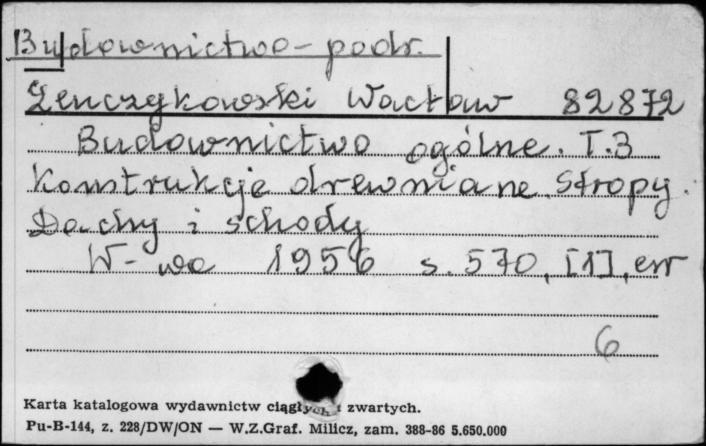 Budownictwo - podr.
Żenczykowski Wacław 82872
Budownictwo ogólne. T.3
Konstrukcje drewniane. Stropy.
Dachy i schody
W-wa 1956 s. 570, [1], err
6
Karta katalogowa wydawnictw ciągłych i zwartych.
Pu-B-144, z. 228/DW/ON — W.Z.Graf. Milicz, zam. 388-86 5.650.000